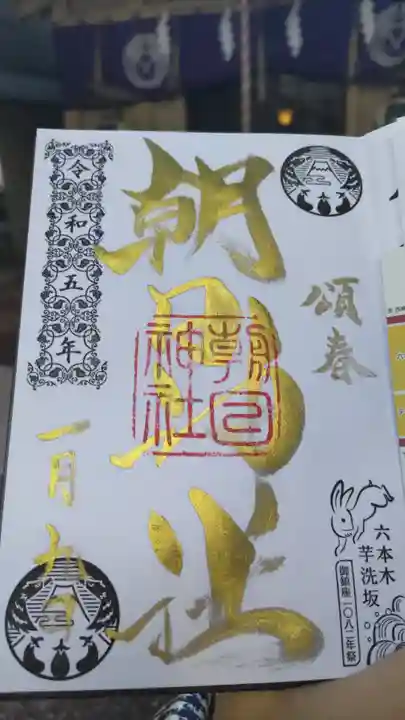 頌春
六本木
芋洗坂
御鎮座一〇八二年祭
朝日社
朝日
神社
令和五年
一月九日